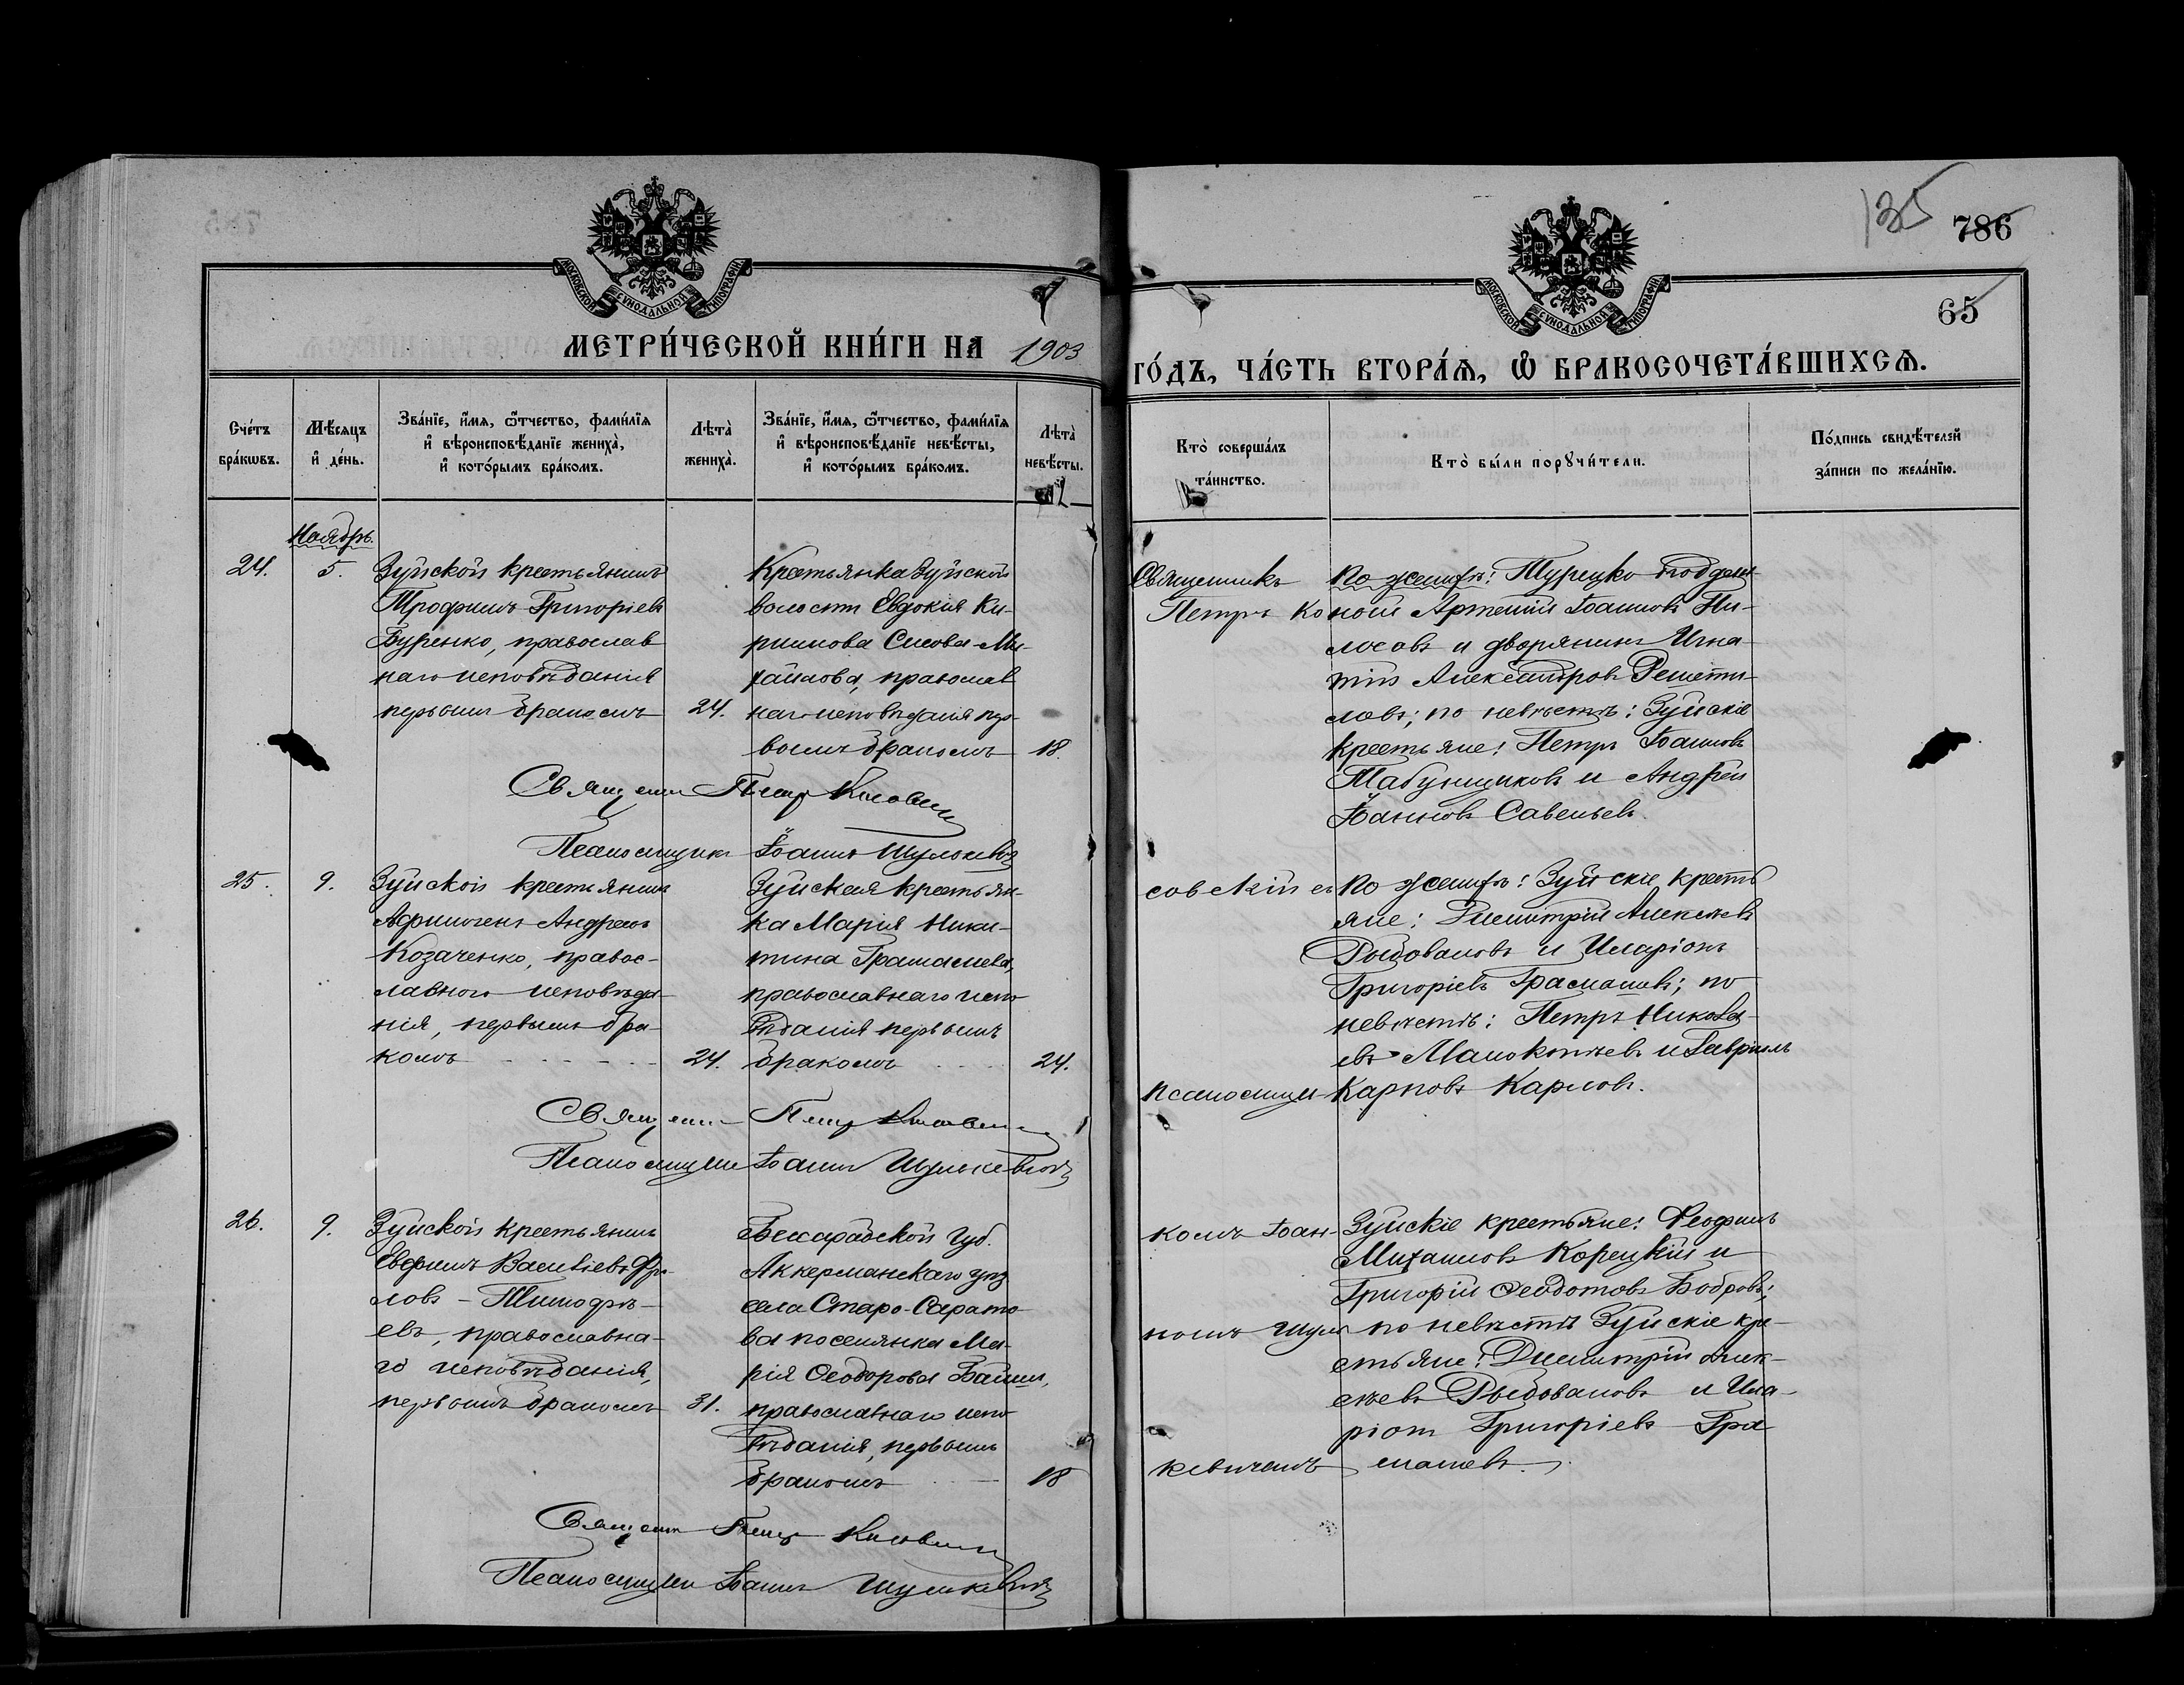 135
786
65
МОСКОВСКОЙ СУНОДАЛЬНОЙ ТИПОГРАФІИ
МОСКОВСКОЙ СУНОДАЛЬНОЙ ТИПОГРАФІИ
МЕТРИ́ЧЕСКОЙ КНИ́ГИ НА 1903
ГО́ДЪ, ЧА́СТЬ ВТОРА́Ѧ, Ѡ БРАКОСОЧЕТА́ВШИХСѦ.
Сче́тъ бра́кѡвъ.
Мѣ́сяцъ и де́нь.
Зва́нїе, и҆́мѧ, ѻ҆́тчество, фами́лїѧ и҆ вѣроисповѣ́данїе жениха̀, и҆ кото́рымъ бра́комъ.
Лѣта̀ жениха̀.
Зва́нїе, и҆́мѧ, ѻ҆́тчество, фами́лїѧ и҆ вѣроисповѣ́данїе невѣ́сты, и҆ кото́рымъ бра́комъ.
Лѣта̀ невѣ́сты.
Кто̀ соверша́лъ та́инство.
Кто̀ бы́ли порꙋчи́тели.
По́дпись свидѣ́телей за́писи по жела́нїю.
Ноябрь.
24.
5.
Зуйской крестьянинъ
Трофимъ Григоріевъ
Буренко, православ
наго исповѣданія
первымъ бракомъ
24.
Крестьянка Зуйской
волости Евдокія Ки-
рилова
православ
наго исповѣданія пер-
вымъ бракомъ
18.
Священникъ
Петръ Ко
По женихѣ: Турецко-поддан
ный Артемій Іоанновъ
и дворянинъ Игна-
тій Александровъ Решети-
ловъ; по невѣстѣ: Зуйскіе
крестьяне: Петръ Іоанновъ
Табунщиковъ и Андрей
Іоанновъ Савельевъ.
Священ Петр
Псаломщикъ Іоаннъ Шулькевичъ
25.
9.
Зуйской крестьянинъ
Андреевъ
Козаченко, правос-
лавного исповѣда-
нія, первымъ бра-
комъ
24.
Зуйская крестьян-
ка Марія Ники-
тина
православнаго испо
вѣданія первымъ
бракомъ
24.
совскій съ
псаломщи-
По женихѣ: Зуйскіе кресть
яне: Димитрій Алексѣевъ
Рыбоваловъ и Иларіонъ
Григоріевъ; по
невѣстѣ: Петръ Никола-
евъ и Гавріилъ
Карповъ Карповъ.
Священ Петр
Псаломщикъ Іоаннъ Шулькевичъ
26.
9.
Зуйской крестьянинъ
Евфимъ Василіевъ Фро
ловъ - Тимофѣ-
евъ, православна-
го исповѣданія,
первымъ бракомъ
31.
Бессарабской губ.
Аккерманскаго уѣз
села Старо-Сарато
ва поселянка Ма-
рія Ѳеодорова
православнаго испо
вѣданія, первымъ
бракомъ
18
комъ Іоан-
номъ Шуль
кевичемъ
Зуйскіе крестьяне: Ѳеофилъ
Михаиловъ Корецкій и
Григорій Ѳеодотовъ Бобровъ;
по невѣстѣ Зуйскіе кре-
стьяне: Димитрій Алек-
сѣевъ Рыбоваловъ и Ила-
ріонъ Григоріевъ
Священ Петр
Псаломщикъ Іоаннъ Шулькевичъ